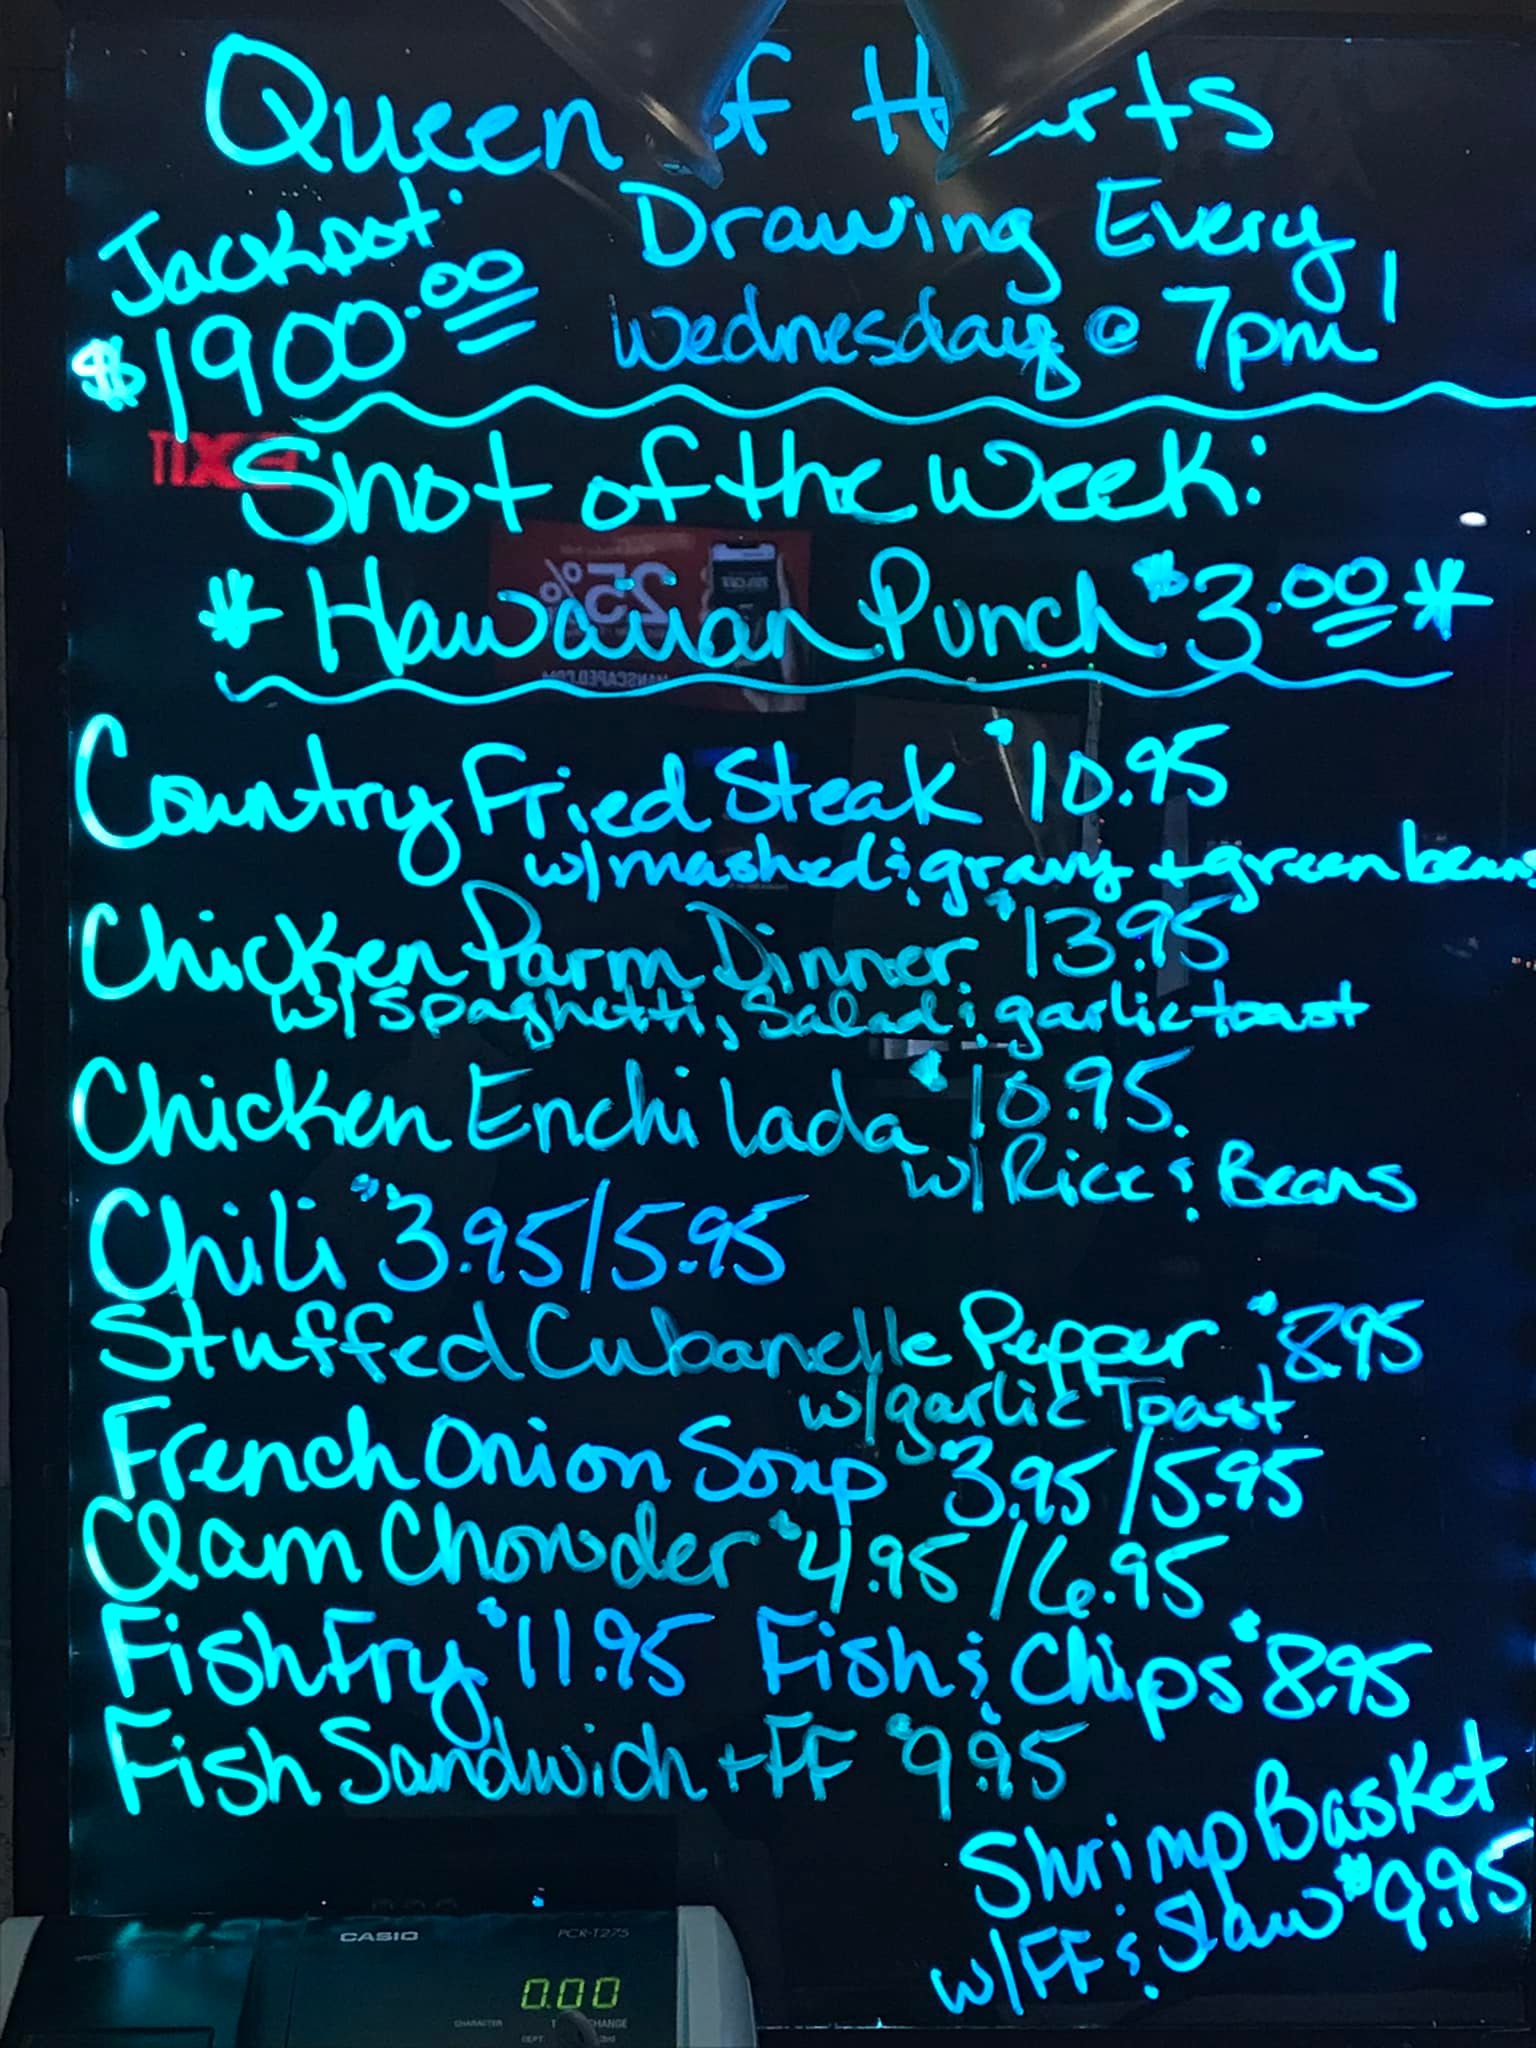 Queen of Hearts
Jackpot:
$1900.00
Drawing Every
Wednesday @ 7pm!
EXIT
Shot of the Week:
25%
* Hawaiian Punch $3.00 *
MANSCAPED.COM
Country Fried Steak $10.95
w/mashed & gravy + green beans
Chicken Parm Dinner $13.95
w/spaghetti, salad & garlic toast
Chicken Enchilada $10.95.
w/Rice & Beans
Chili $3.95/5.95
Stuffed Cubanelle Pepper $8.95
w/garlic Toast
French Onion Soup $3.95/5.95
Clam Chowder $4.95/6.95
Fish Fry $11.95 Fish & Chips $8.95
Fish Sandwich + FF $9.95
Shrimp Basket
w/FF & Slaw $9.95
CASIO PCR-T275
0.00
CHARACTER
DEPT